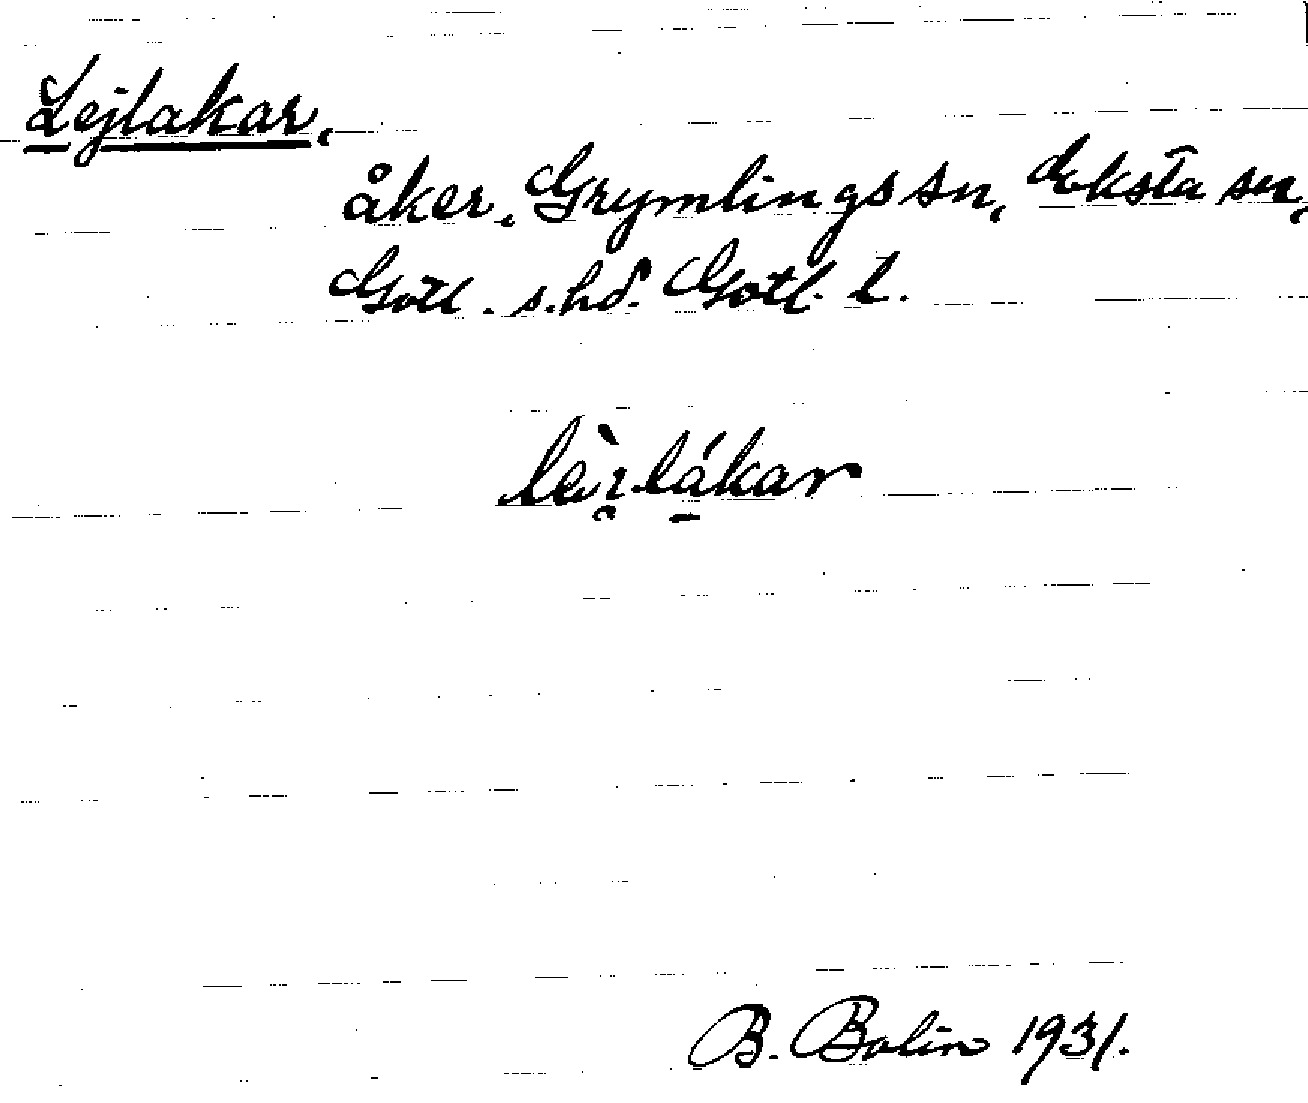 Lejlakar,
åker, Grymlings sn, Eksta sn,
Gotl. s. hd. Gotl. l.
B. Bolin 1931.